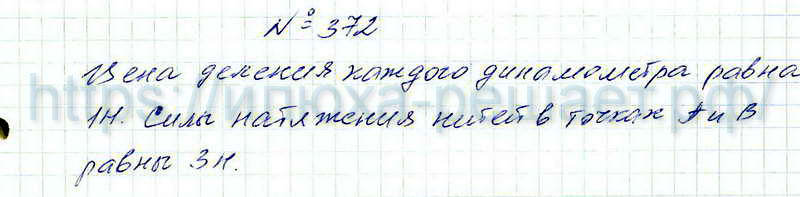 № 372
Цена деления каждого динамометра равна
1Н. Силы натяжения нитей в точках А и В
равны 3н.
https://илюха-решает.рф/